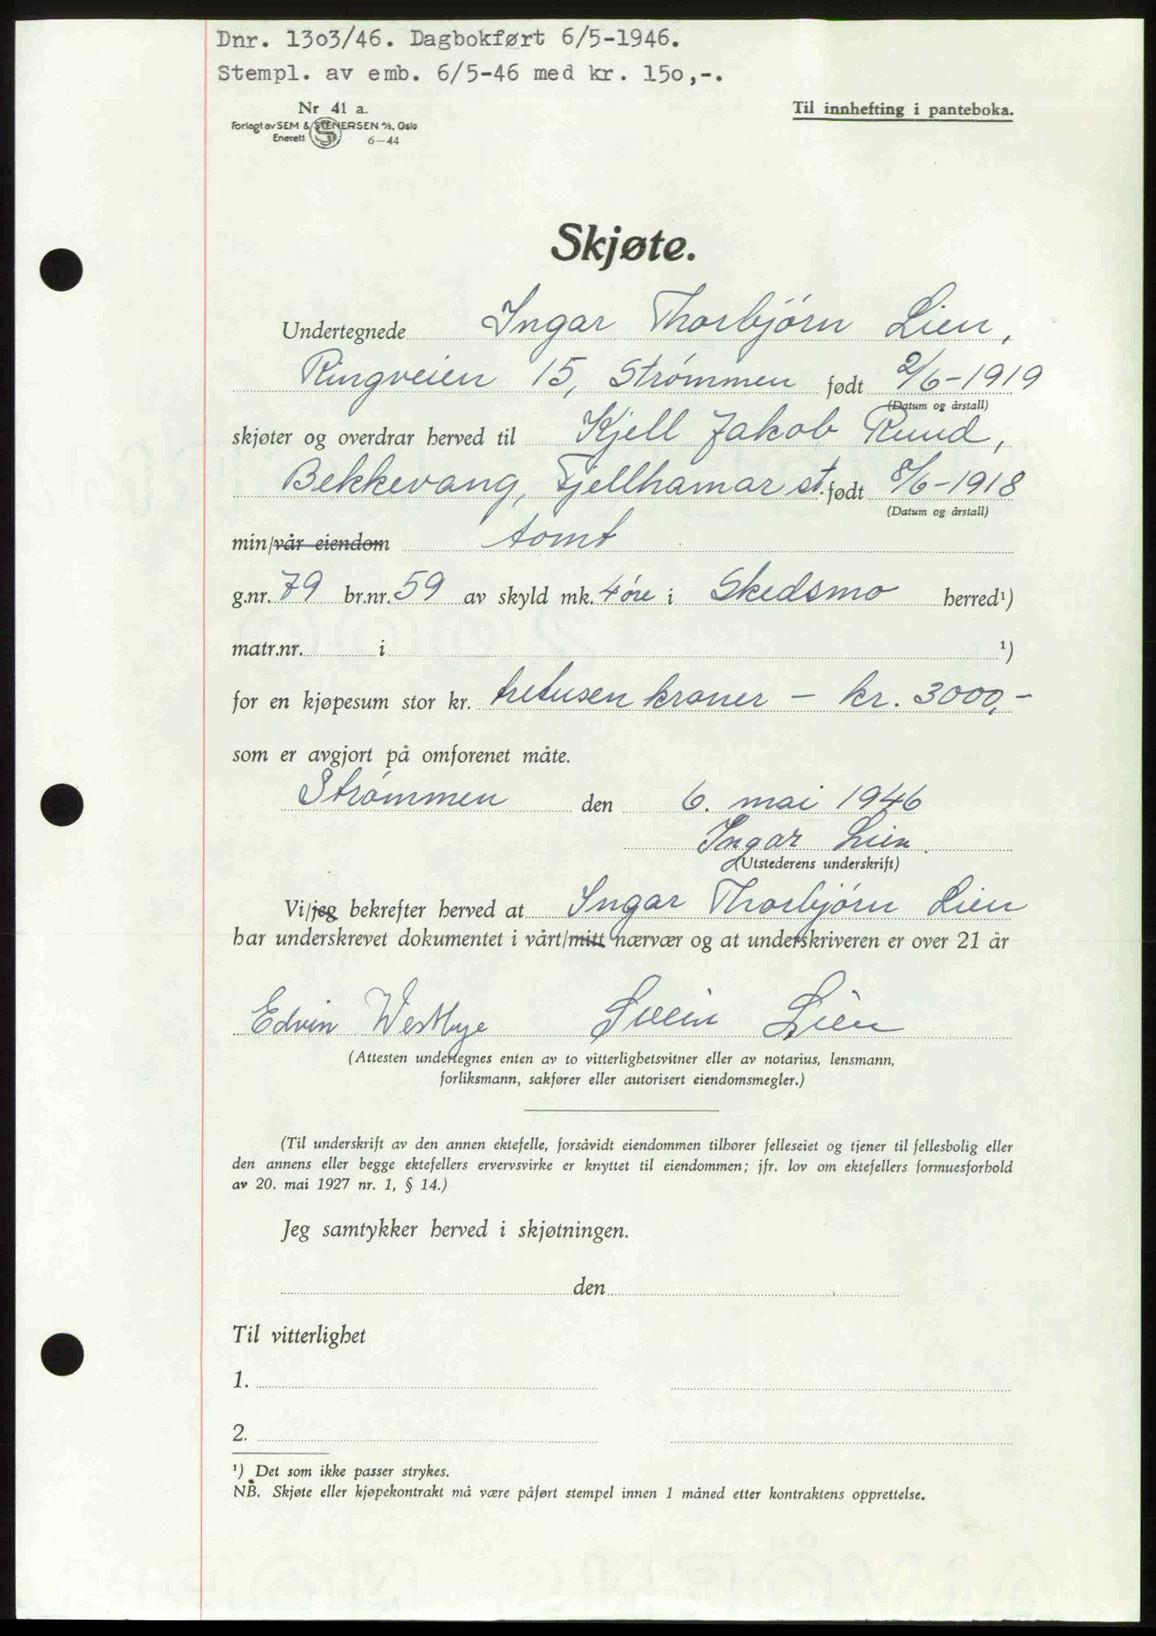 Dnr. 1303/46. Dagbokført 6/5-1946.
Stempl. av emb. 6/5-46 med kr. 150,-.
Nr 41 a.
Forlagt av SEM & STENERSEN A/S, Oslo
Enerett 6-44
Til innhefting i panteboka.
Skjøte.
Undertegnede Ingar Thorbjörn Lien,
Ringveien 15, Strømmen født 2/6-1919
(Datum og årstall)
skjøter og overdrar herved til Kjell Jakob Ruud,
Bekkevang, Fjellhamar st. født 8/6-1918
(Datum og årstall)
min/vår eiendom tomt
g.nr. 79 br.nr. 59 av skyld mk. 4 öre i Skedsmo herred¹)
matr.nr. i ¹)
for en kjøpesum stor kr. tretusen kroner - kr. 3000,-
som er avgjort på omforenet måte.
Strømmen den 6. mai 1946
Ingar Lien.
(Utstederens underskrift)
Vi/jeg bekrefter herved at Ingar Thorbjörn Lien
har underskrevet dokumentet i vårt/mitt nærvær og at underskriveren er over 21 år
Edvin Westbye Svein Lien
(Attesten undertegnes enten av to vitterlighetsvitner eller av notarius, lensmann,
forliksmann, sakfører eller autorisert eiendomsmegler.)
(Til underskrift av den annen ektefelle, forsåvidt eiendommen tilhører felleseiet og tjener til fellesbolig eller
den annens eller begge ektefellers ervervsvirke er knyttet til eiendommen; jfr. lov om ektefellers formuesforhold
av 20. mai 1927 nr. 1, § 14.)
Jeg samtykker herved i skjøtningen.
den
Til vitterlighet
1.
2.
¹) Det som ikke passer strykes.
NB. Skjøte eller kjøpekontrakt må være påført stempel innen 1 måned etter kontraktens opprettelse.